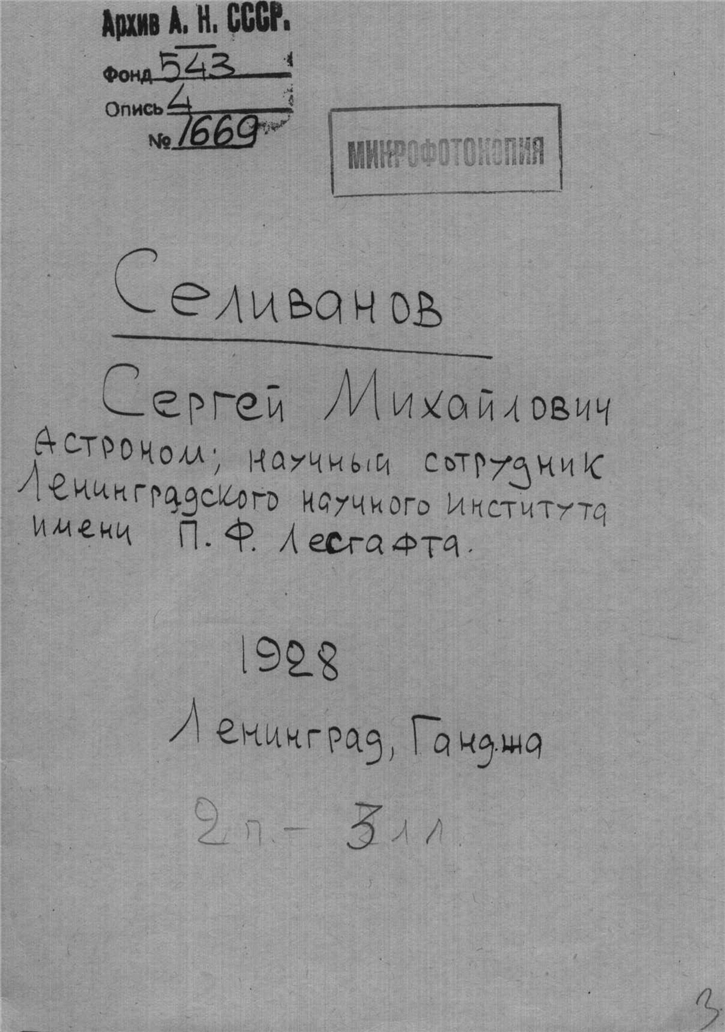 Архив А. Н. СССР.
Фонд 543
Опись 4
№ 1669
МИКРОФОТОКОПИЯ
Селиванов
Сергей Михайлович
Астроном; научный сотрудник
Ленинградского научного института
имени П. Ф. Лесгафта.
1928
Ленинград, Ганджа
2 п. – 3 лл.
3